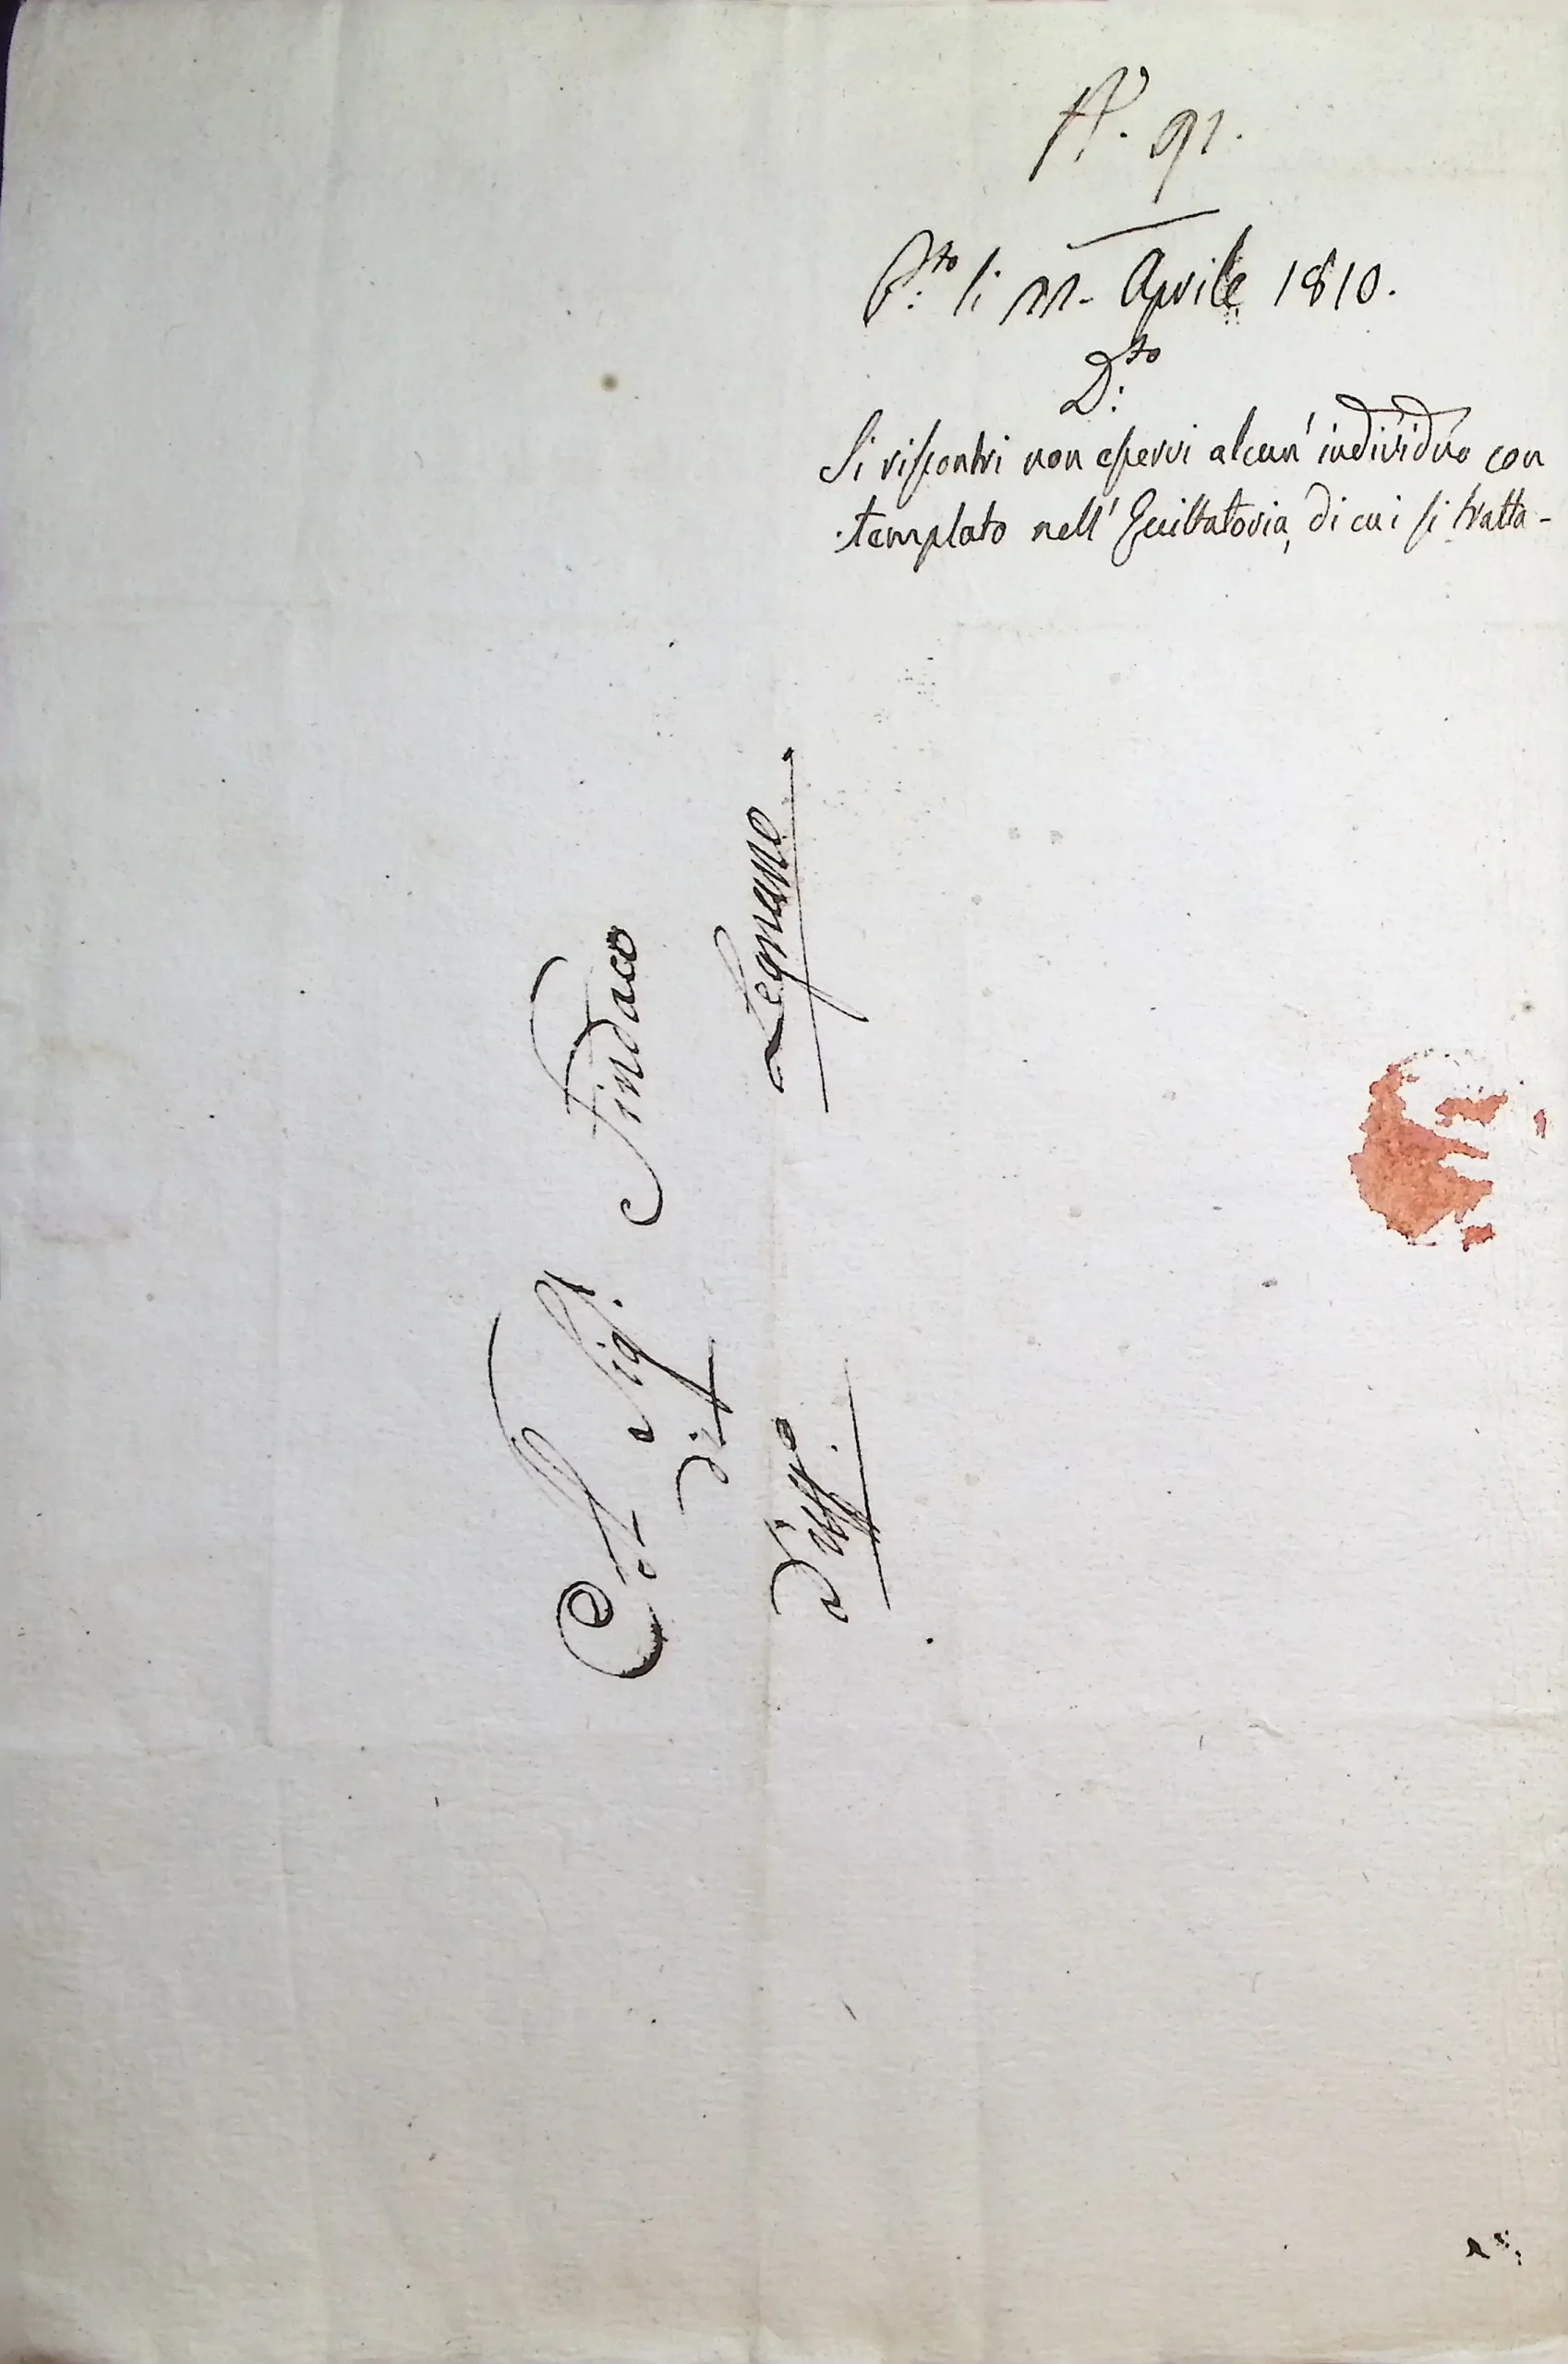 N. 91.
P.to li 11. Aprile 1810.
D.to
Si riscontri non esservi alcun' individuo con
templato nell' Eccittatoria, di cui si tratta-
Al Sig.r Sindaco
di Legnano
d'uff.o